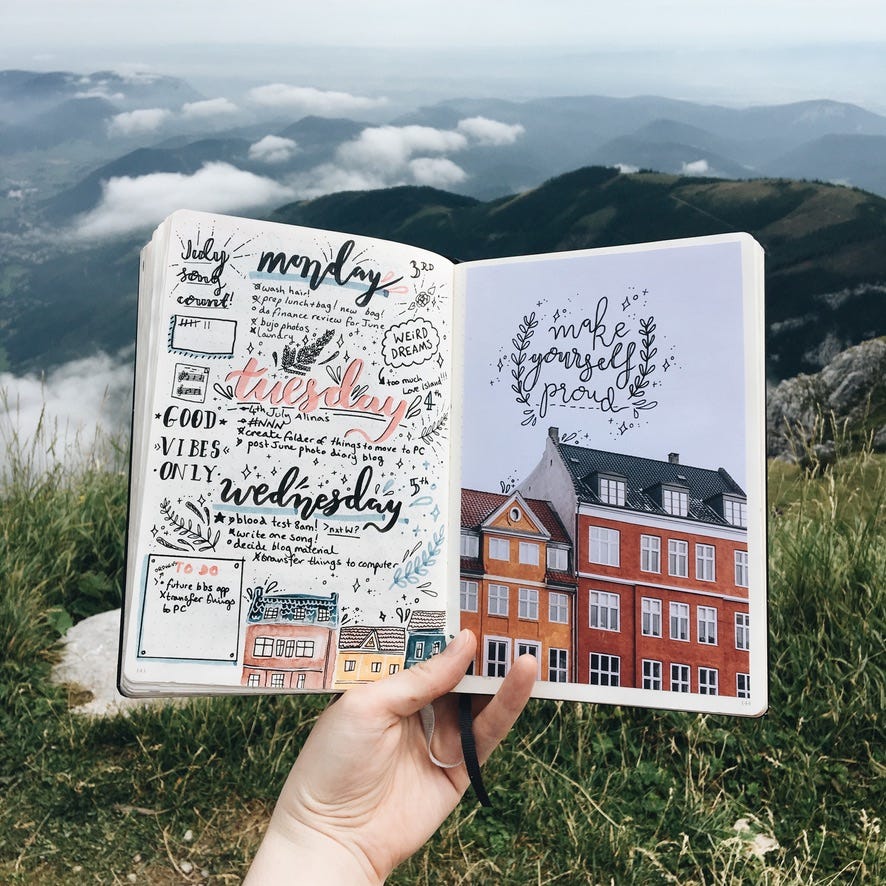 July
song
count!
GOOD
VIBES
ONLY
ONGOING
TO DO
future bbs app
x transfer things
to PC
monday
3RD
wash hair!
x prep lunch + bag! new bag!
o do finance review for June
x bujo photos
x laundry
WEiRD
DREAMS
too much
Love island!!!
tuesday
4th
4th July Alinas
#NNN
x create folder of things to move to PC
post June photo diary blog
wednesday
5th
blood test 8am! > nxt W?
x write one song!
o decide blog material
x transfer things to computer
make
yourself
proud